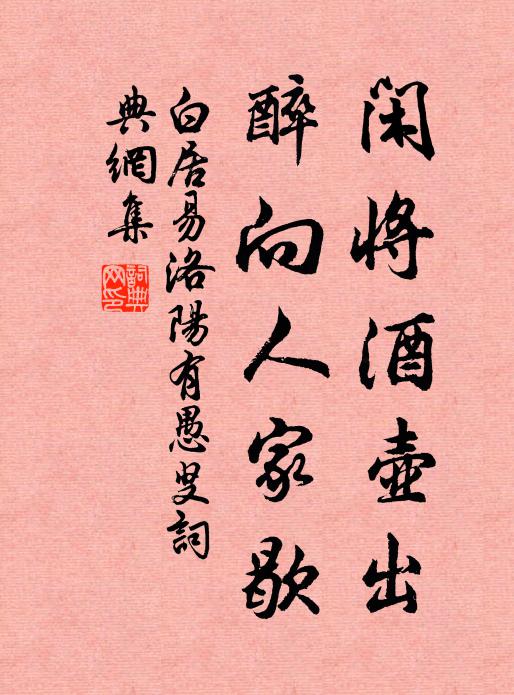 闲将酒壶出
醉向人家歇
白居易洛陽有愚叟詞
典網集
詞典網印